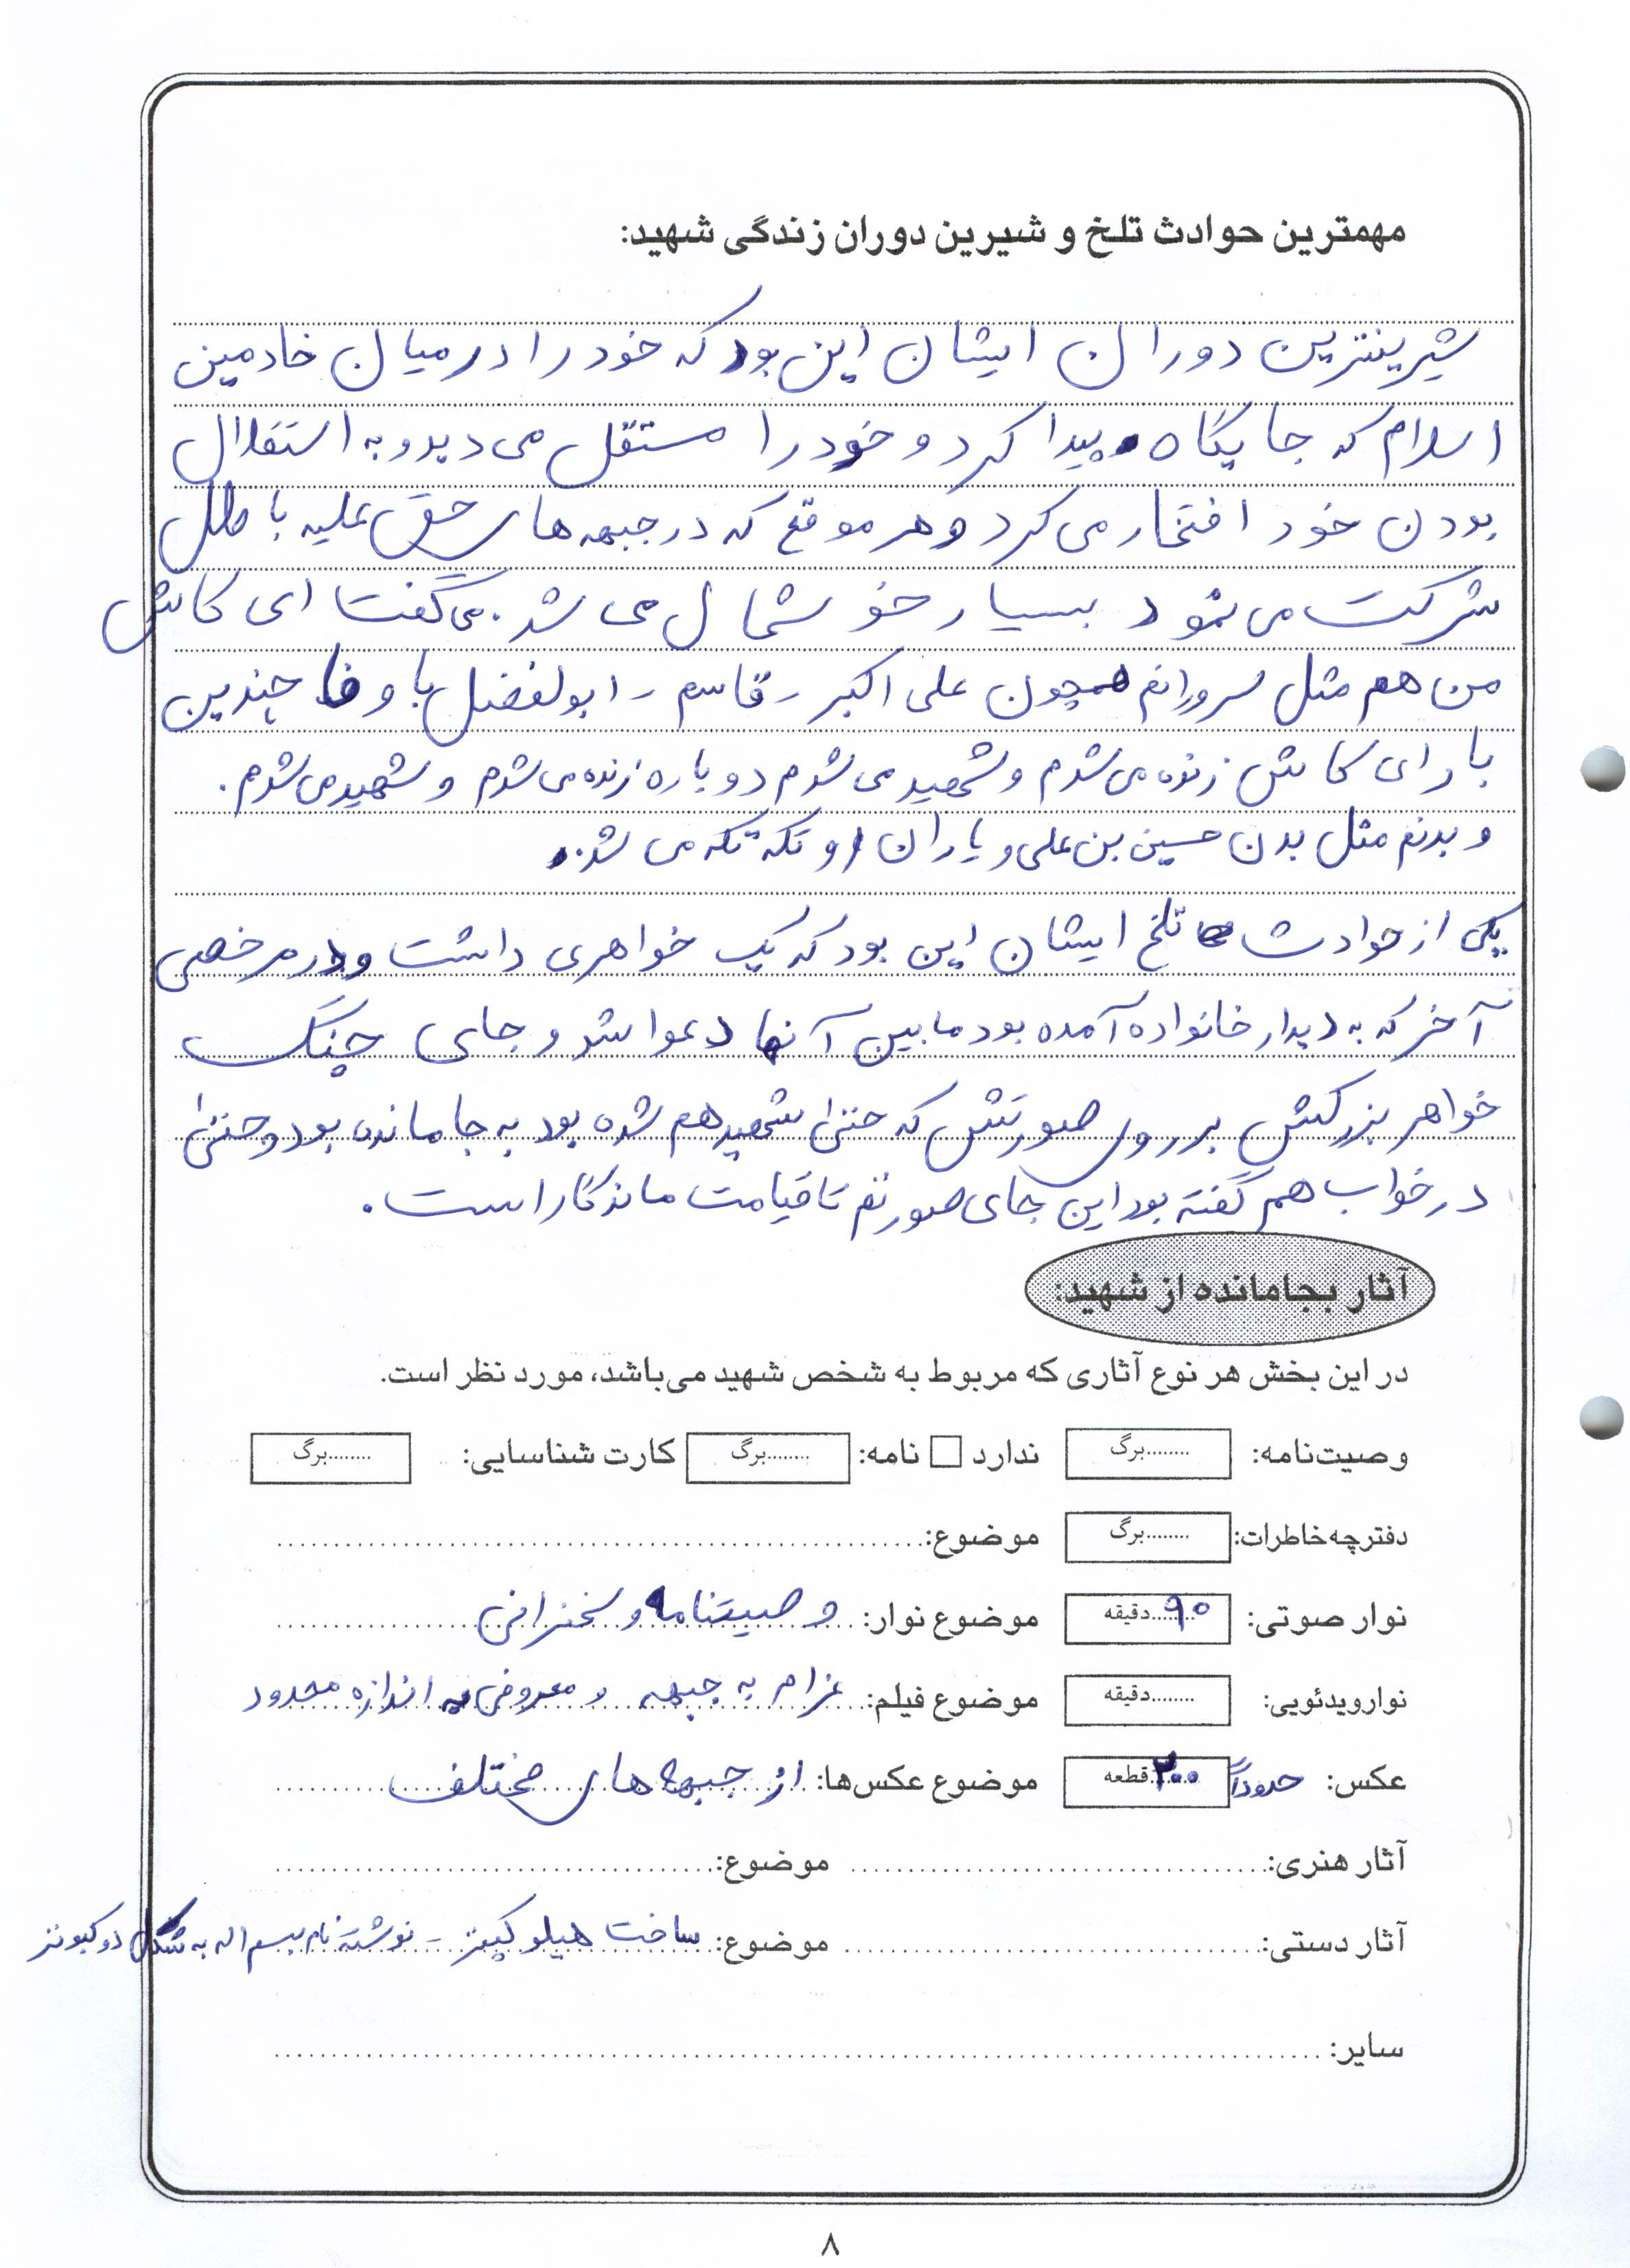 مهمترین حوادث تلخ و شیرین دوران زندگی شهید:
شیرینترین دوران ایشان این بود که خود را در میان خادمین
اسلام که جایگاه پیدا کرد و خود را مستقل می دید و به استقلال
بودن خود افتخار می کرد و هر موقع که در جبهه های حق علیه باطل
شرکت می نمود بسیار خوشحال می شد. می گفت ای کاش
من هم مثل سرورانم همچون علی اکبر - قاسم - ابولفضل با وفا چندین
بار ای کاش زنده می شدم و شهید می شدم دوباره زنده می شدم و شهید می شدم.
و بدنم مثل بدن حسین بن علی و یاران او تکه تکه می شد.
یکی از حوادث تلخ ایشان این بود که یک خواهری داشت و در مرخصی
آخر که به دیدار خانواده آمده بود مابین آنها دعوا شد و جای چنگ
خواهر بزرگش بر روی صورتش که حتی شهید هم شده بود به جا مانده بود و حتی
در خواب هم گفته بود این جای صورتم تا قیامت ماندگار است.
آثار بجامانده از شهید:
در این بخش هر نوع آثاری که مربوط به شخص شهید می‌باشد، مورد نظر است.
وصیت‌نامه: ........برگ ندارد □ نامه: ........برگ کارت شناسایی: ........برگ
دفترچه خاطرات: ........برگ موضوع:
نوار صوتی: ۹۰ دقیقه موضوع نوار: وصیتنامه و سخنرانی
نوار ویدئویی: ........دقیقه موضوع فیلم: عزام به جبهه و معروفی به اندازه محدود
عکس: حدوداً ۳۰۰ قطعه موضوع عکس‌ها: از جبهه های مختلف
آثار هنری: موضوع:
آثار دستی: موضوع: ساخت هیلوکپتر - نوشته نام بسم اله به شکل دو کبوتر
سایر:
۸